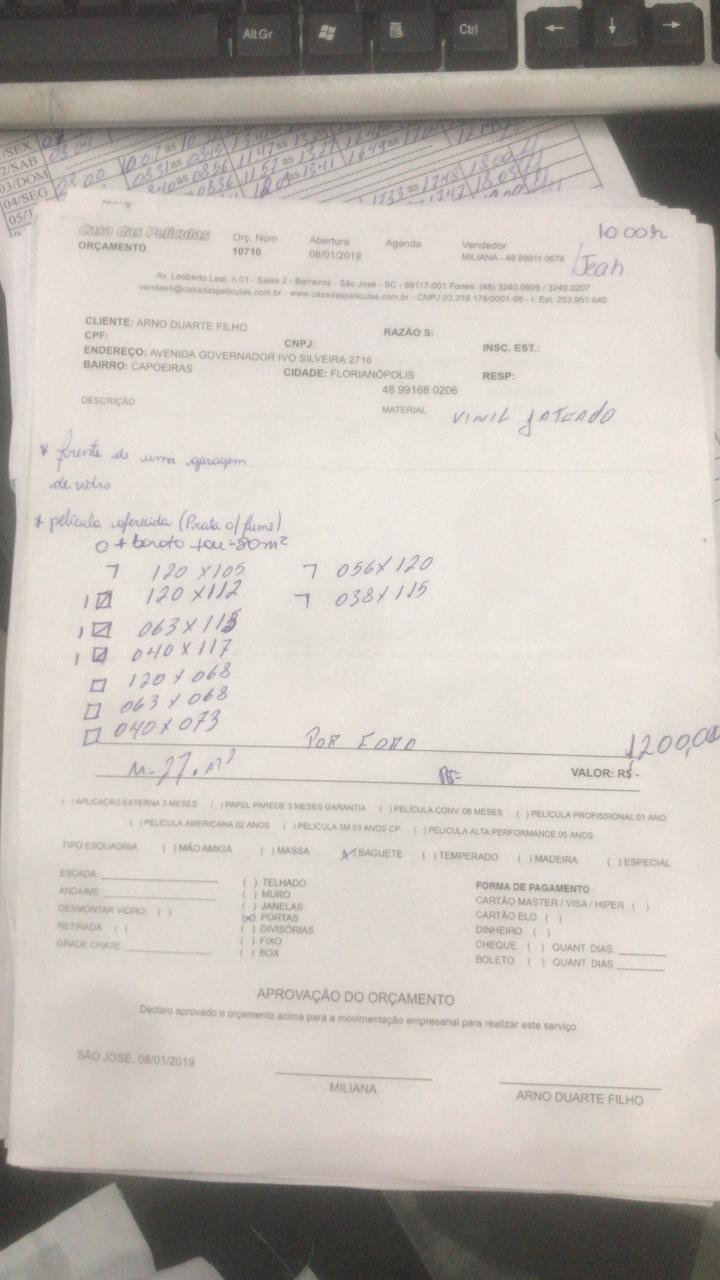 Alt Gr
Ctrl
/SEX
2/SAB
03/DOM
04/SEG 08 00
05/T
Casa das Películas
ORÇAMENTO
Orç. Núm
10710
Abertura
08/01/2019
Agenda
Vendedor
MILIANA - 48 99911 0676
10 00h
Jeah
Av. Leoberto Leal, n 01 - Salas 2 - Barreiros - São José - SC - 88117-001 Fones: (48) 3240.0605 / 3240.0207
vendas4@casadaspeliculas.com.br - www.casadaspeliculas.com.br - CNPJ 03.319.178/0001-98 - I. Est. 253.951.640
CLIENTE: ARNO DUARTE FILHO
CPF:
CNPJ:
RAZÃO S:
INSC. EST.:
ENDEREÇO: AVENIDA GOVERNADOR IVO SILVEIRA 2716
BAIRRO: CAPOEIRAS
CIDADE: FLORIANÓPOLIS
RESP:
48 99168 0206
DESCRIÇÃO
MATERIAL
VINIL JATEADO
* frente de uma garagem
de vidro
* película oferecida (Prata c/ fumê)
120 X 105
056 X 120
1 120 X 112
038 X 115
1 063 X 115
1 040 X 117
120 X 068
063 X 068
040 X 073
POR FORA
1200,00
M= 27. M²
VALOR: R$ -
( ) APLICAÇÃO EXTERNA 3 MESES ( ) PAPEL PAREDE 3 MESES GARANTIA ( ) PELÍCULA CONV. 06 MESES ( ) PELÍCULA PROFISSIONAL 01 ANO
( ) PELÍCULA AMERICANA 02 ANOS ( ) PELICULA 3M 03 ANOS CP ( ) PELÍCULA ALTA PERFORMANCE 05 ANOS
TIPO ESQUADRIA ( ) MÃO AMIGA ( ) MASSA (X) BAGUETE ( ) TEMPERADO ( ) MADEIRA ( ) ESPECIAL
ESCADA:
ANDAIME:
DESMONTAR VIDRO: ( )
RETIRADA: ( )
GRADE CHAVE:
( ) TELHADO
( ) MURO
( ) JANELAS
(X) PORTAS
( ) DIVISÓRIAS
( ) FIXO
( ) BOX
FORMA DE PAGAMENTO
CARTÃO MASTER / VISA / HIPER ( )
CARTÃO ELO ( )
DINHEIRO ( )
CHEQUE ( ) QUANT. DIAS:
BOLETO ( ) QUANT. DIAS
APROVAÇÃO DO ORÇAMENTO
Declaro aprovado o orçamento acima para a movimentação empresarial para realizar este serviço
SÃO JOSÉ, 08/01/2019
MILIANA
ARNO DUARTE FILHO